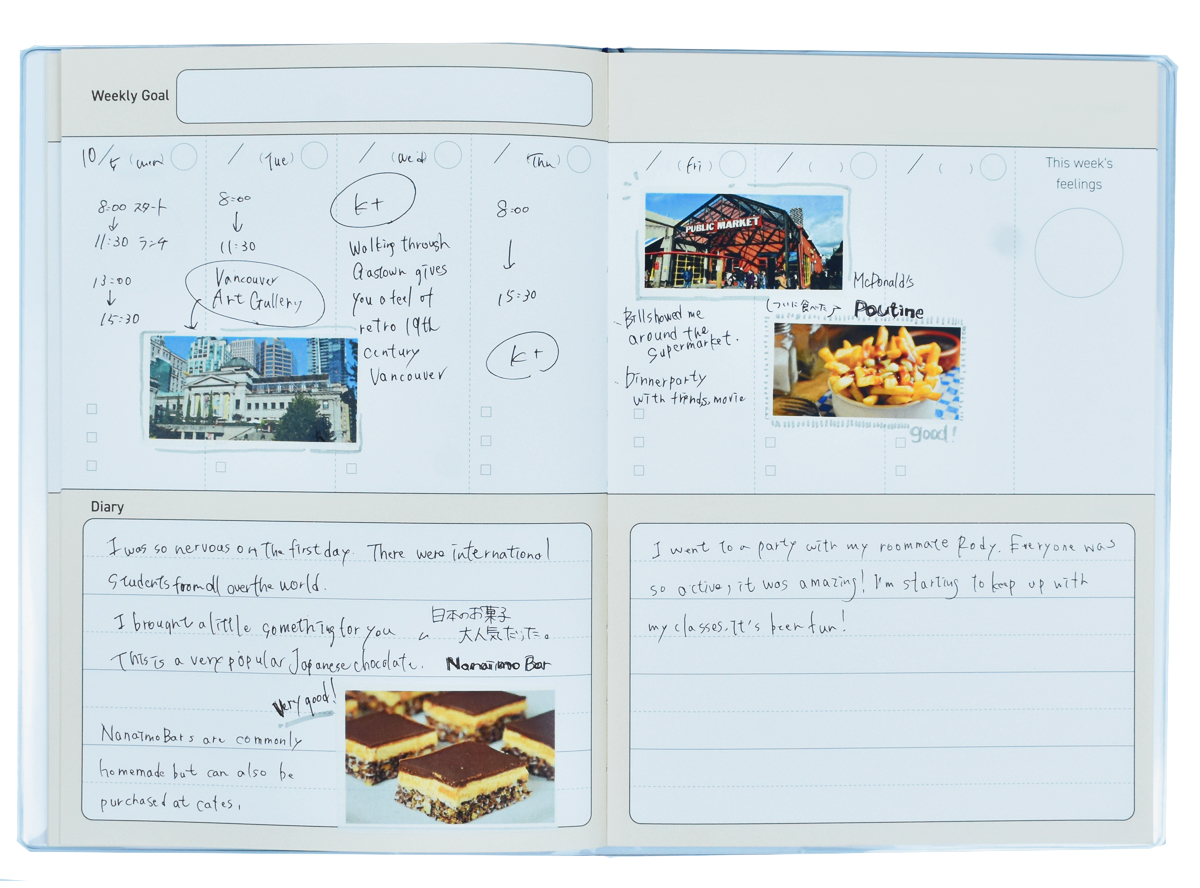 Weekly Goal
10/5 (mon)
8:00 スタート
11:30 ランチ
13:00
15:30
/ (Tue)
8:00
11:30
Vancouver
Art Gallery
/ (wed)
k+
Walking through
Gastown gives
you a feel of
retro 19th
century
Vancouver
/ (Thu)
8:00
15:30
k+
/ (fri)
PUBLIC MARKET
Bill showed me
around the
supermarket.
Dinner party
with friends, movie
/ ( )
McDonald's
(ついに食べた) Poutine
good!
/ ( )
This week's
feelings
Diary
I was so nervous on the first day. There were international
students from all over the world.
I brought a little something for you
日本のお菓子
大人気だった。
This is a very popular Japanese chocolate.
Nanaimo Bar
Very good!
Nanaimo Bars are commonly
homemade but can also be
purchased at cafes.
I went to a party with my roommate Rody. Everyone was
so active, it was amazing! I'm starting to keep up with
my classes. It's been fun!